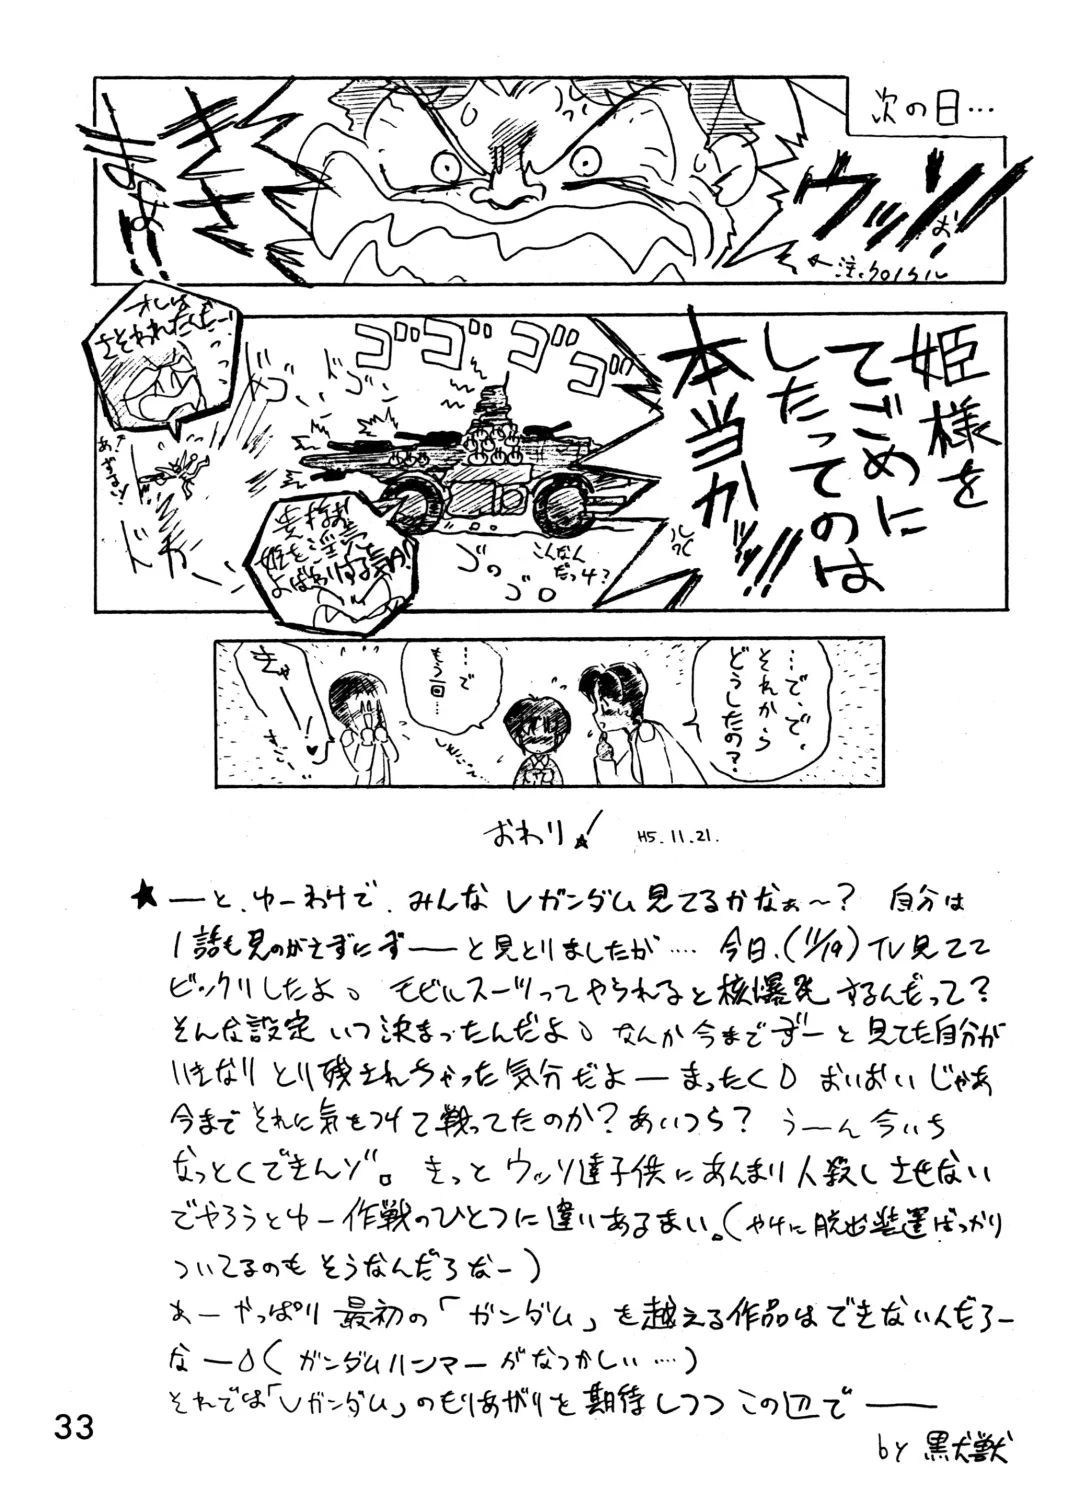 次の日…
ウッソ!
お
←注.クロノクル
きさ
まぁ!!
姫様を
てごめに
したってのは
本当か!!!
ゴゴゴゴ
オレは
さそわれたんだー!
ドカ
ゴゴゴ
こんなん
だっけ?
姫を淫売
よばわりする気か!
…で、で、
それから
どうしたの?
…で
もう一回…
きゃー!♥
おわり! H5.11.21.
★ーと、ゆーわけで、みんなVガンダム見てるかなぁ〜? 自分は
1話も見のがさずにずーーと見とりましたが…. 今日、(11/19)TV見てて
ビックリしたよ。モビルスーツってやられると核爆発するんだって?
そんな設定いつ決まったんだよ。なんか今までずーと見てた自分が
いきなりとり残されちゃった気分だよーまったく。おいおいじゃあ
今までそれに気をつけて戦ってたのか?あいつら? うーん今いち
なっとくできんゾ。きっとウッソ達子供にあんまり人殺しさせない
でやろうとゆー作戦のひとつに違いあるまい。(やけに脱出装置ばっかり
ついてるのもそうなんだろなー)
あーやっぱり最初の「ガンダム」を越える作品はできないんだろー
なー。(ガンダムハンマーがなつかしい…)
それでは「Vガンダム」のもりあがりを期待しつつこの辺でーー
by 黒犬獣
33